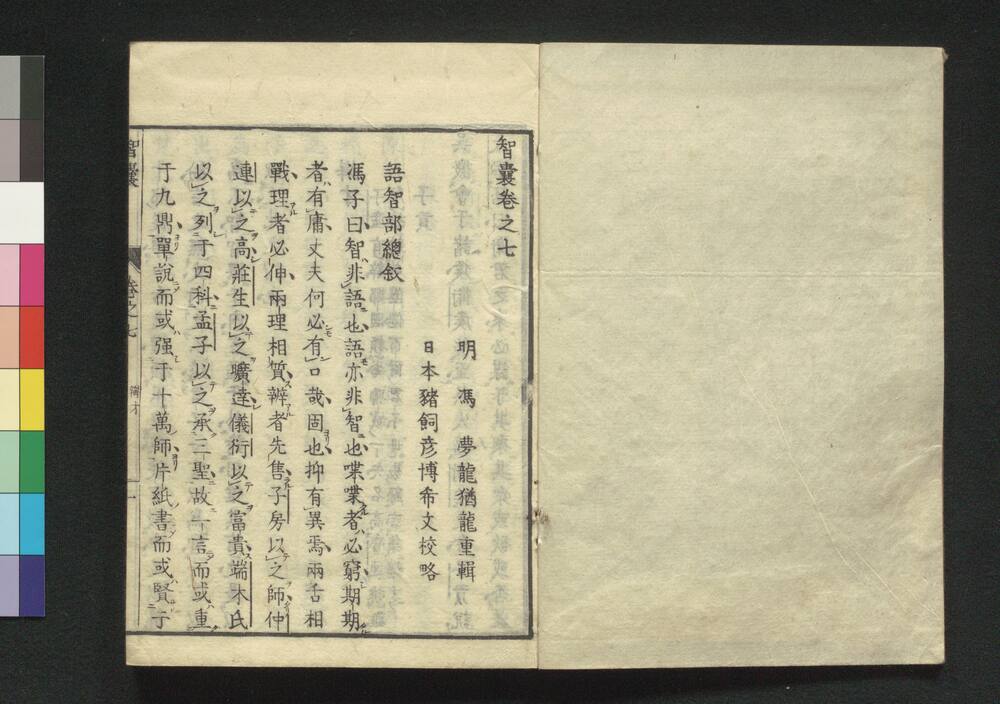 智囊卷之七
明 馮 夢龍猶龍重輯
日本豬飼彦博希文校略
語智部總叙
馮子曰智非語也語亦非智也喋喋者必窮期期
者有庸丈夫何必有口哉固也抑有異焉兩舌相
戰理者必伸兩理相質辨者先售子房以之師仲
連以之高莊生以之曠達儀衍以之富貴端木氏
以之列于四科孟子以之承三聖故一言而或重
于九鼎單說而或强于十萬師片紙書而或賢于
智囊 卷之七